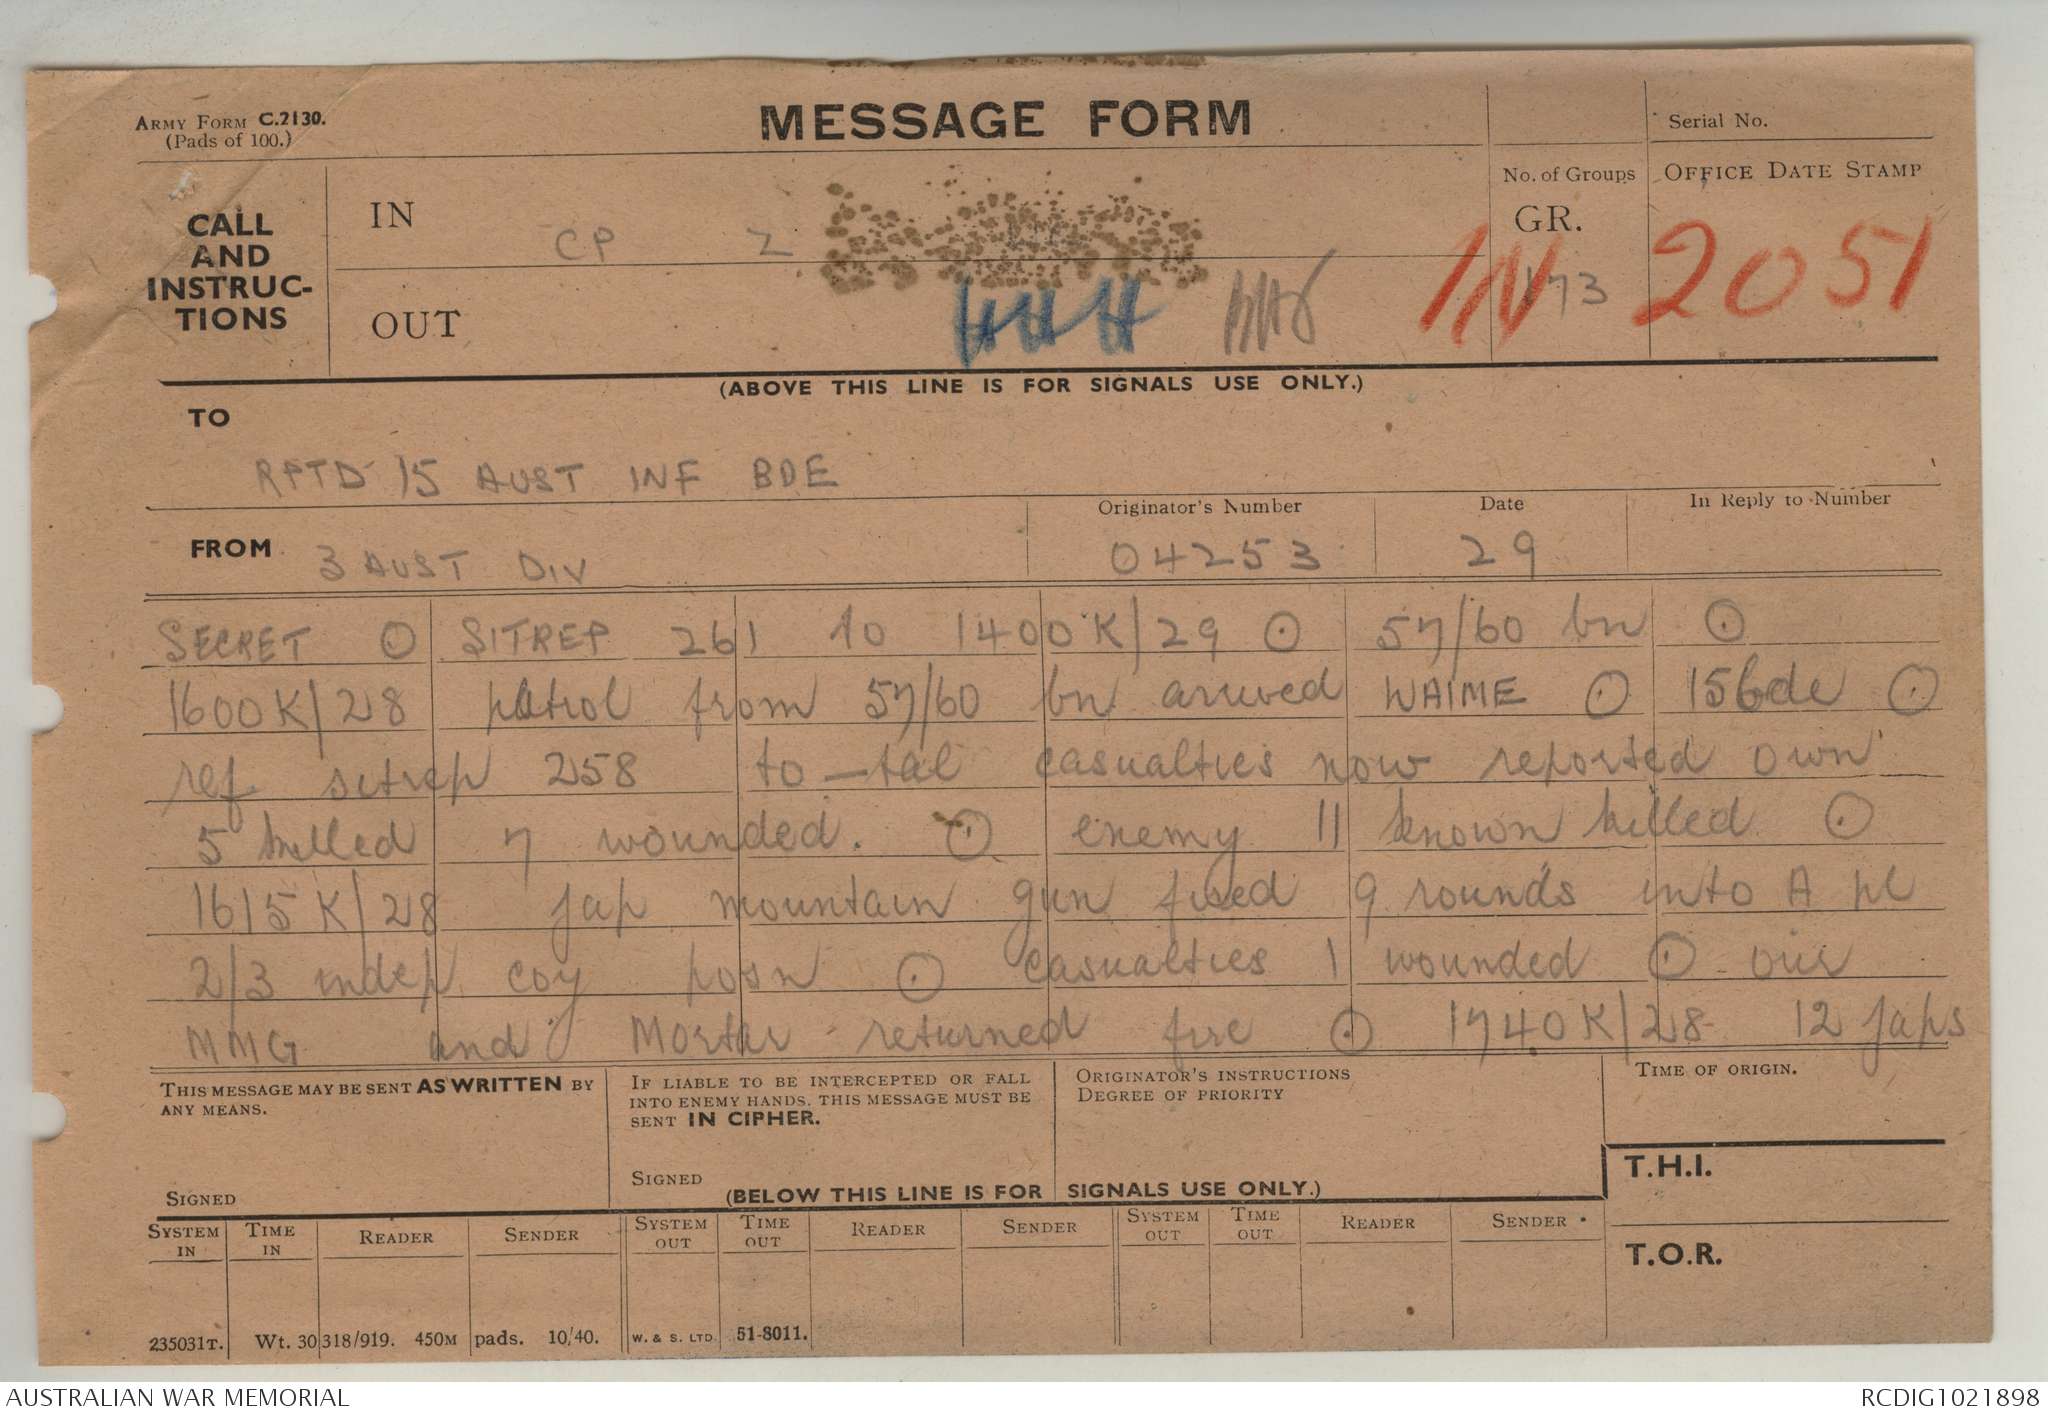 ARMY FORM C.2130.
(Pads of 100.)
MESSAGE FORM
Serial No.
CALL AND INSTRUC-TIONS
IN
CP Z
No. of Groups
GR.
173
OFFICE DATE STAMP
IN 2051
OUT
(ABOVE THIS LINE IS FOR SIGNALS USE ONLY.)
TO
RPTD 15 AUST INF BDE
FROM 3 AUST DIV
Originator's Number
04253
Date
29
In Reply to Number
SECRET ⊙ SITREP 261 to 1400K/29 ⊙ 57/60 bn ⊙
1600K/28 patrol from 57/60 bn arrived WAIME ⊙ 15 bde ⊙
ref sitrep 258 to-tal casualties now reported own
5 killed 7 wounded. ⊙ enemy 11 known killed ⊙
1615K/28 jap mountain gun fired 9 rounds into A pl
2/3 indep coy posn ⊙ casualties 1 wounded ⊙ our
MMG and Mortar returned fire ⊙ 1740K/28 12 japs
THIS MESSAGE MAY BE SENT AS WRITTEN BY
ANY MEANS.
SIGNED
IF LIABLE TO BE INTERCEPTED OR FALL
INTO ENEMY HANDS. THIS MESSAGE MUST BE
SENT IN CIPHER.
SIGNED
ORIGINATOR'S INSTRUCTIONS
DEGREE OF PRIORITY
TIME OF ORIGIN.
T.H.I.
(BELOW THIS LINE IS FOR SIGNALS USE ONLY.)
SYSTEM IN TIME IN READER SENDER SYSTEM OUT TIME OUT READER SENDER SYSTEM OUT TIME OUT READER SENDER
T.O.R.
235031T. Wt. 30318/919. 450M pads. 10/40. W. & S. LTD. 51-8011.
AUSTRALIAN WAR MEMORIAL
RCDIG1021898